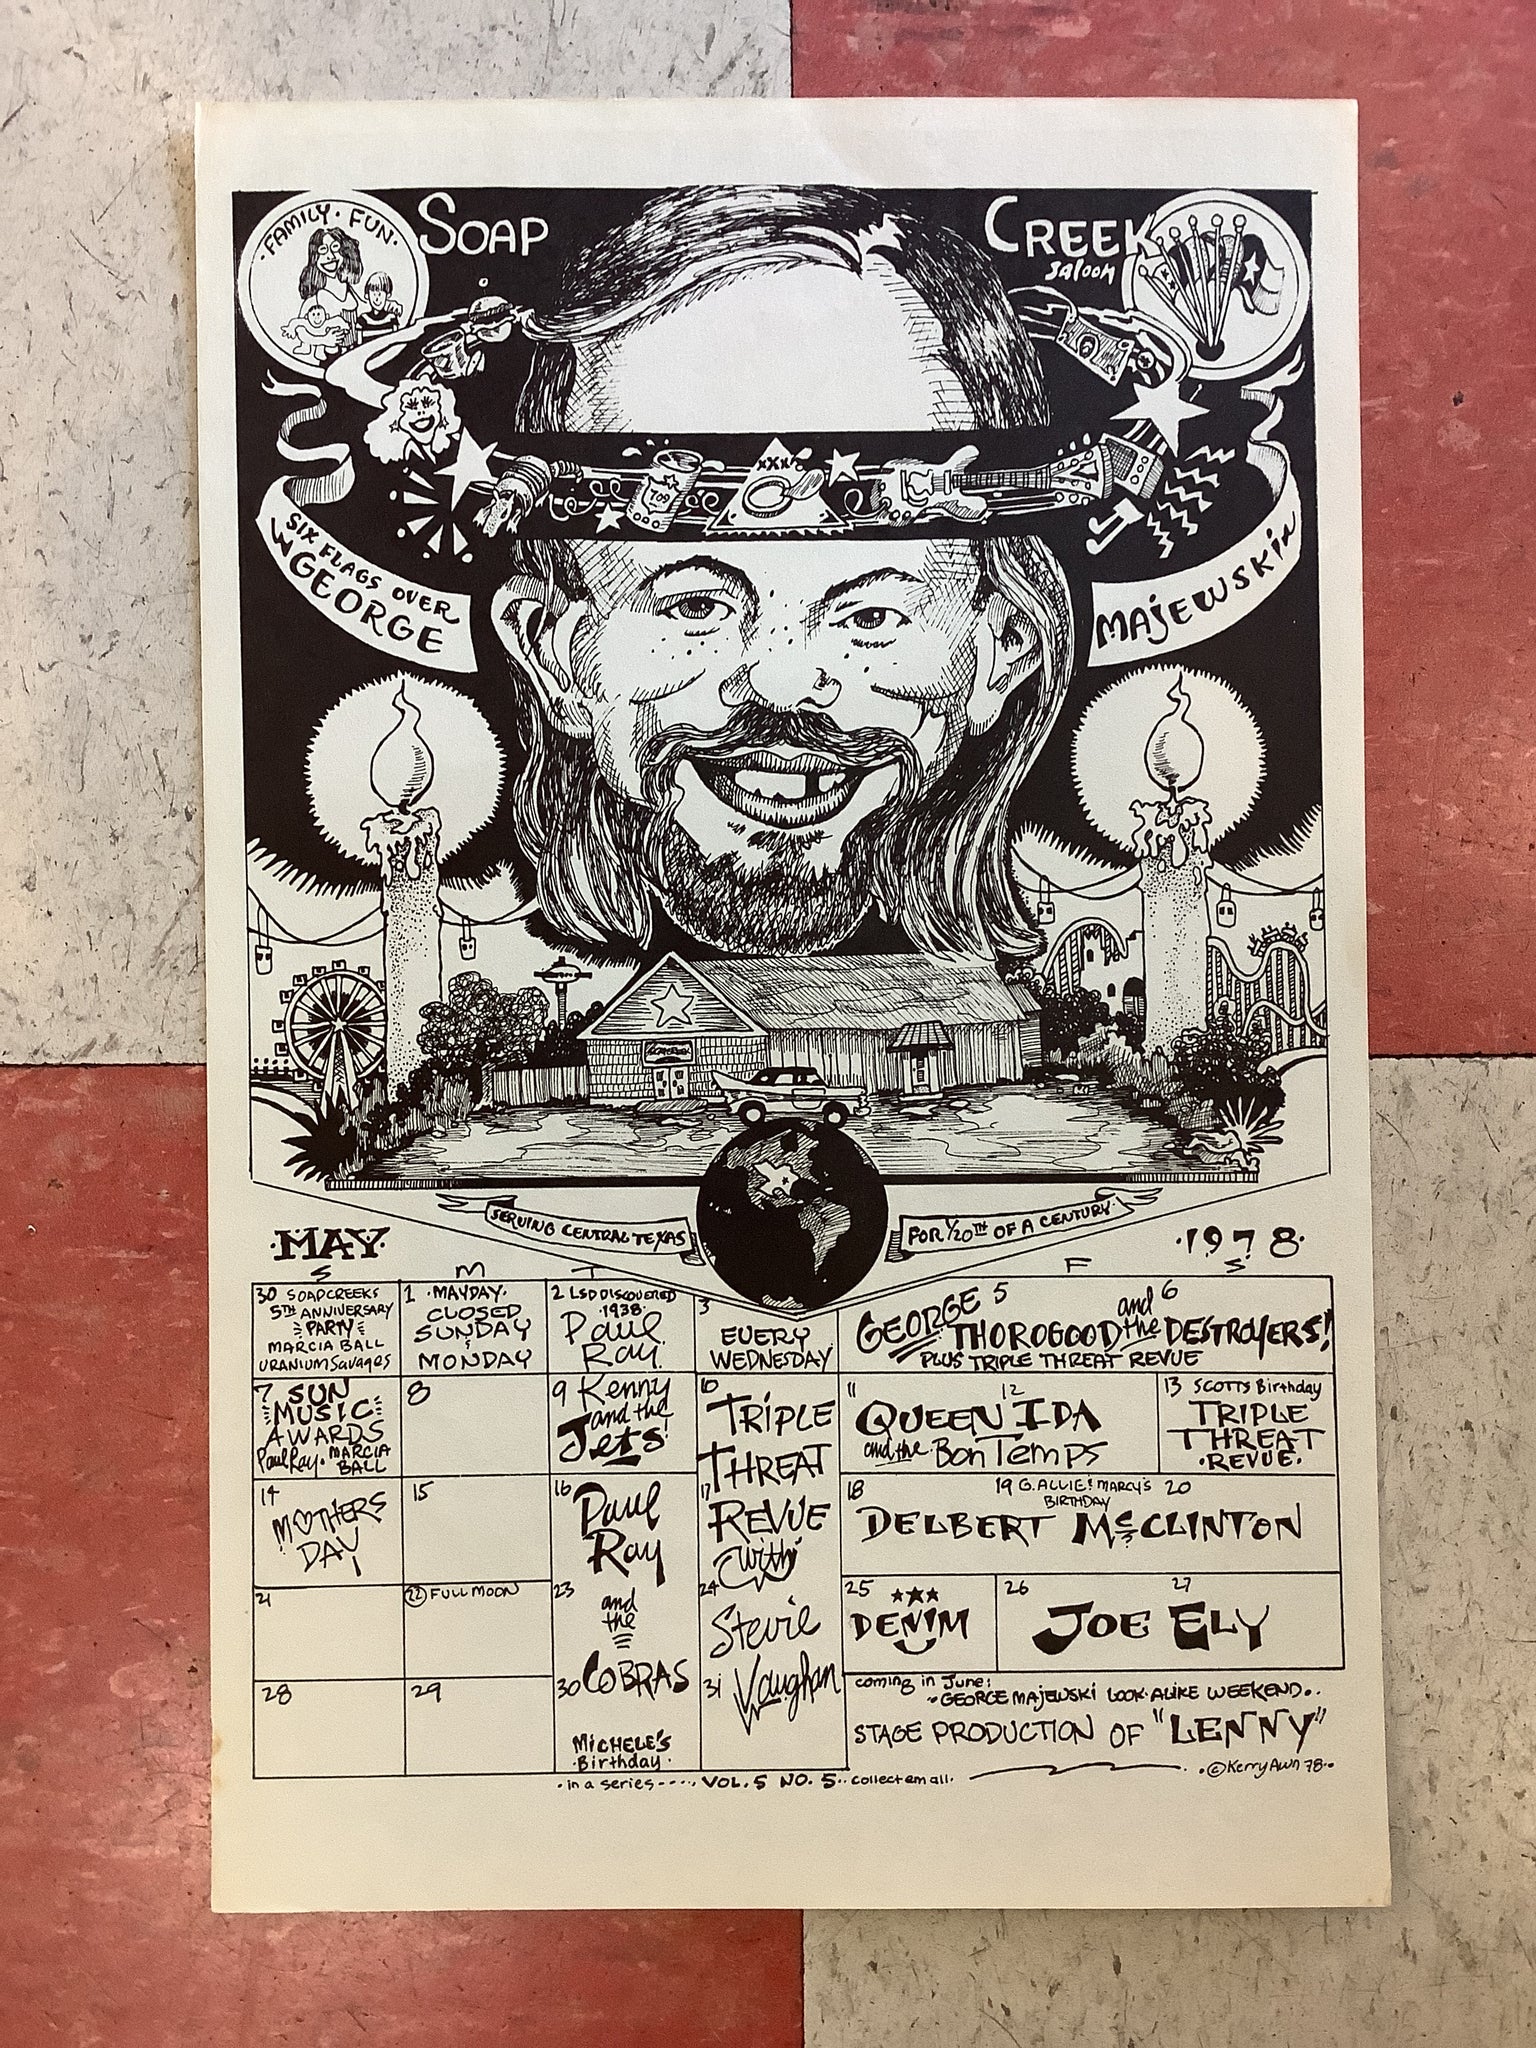 SOAP CREEK
saloon
·FAMILY·FUN·
XXX
709
SIX FLAGS OVER
GEORGE
MAJEWSKI
SERVING CENTRAL TEXAS
FOR 1/20TH OF A CENTURY
·MAY·
·1978·
S M T F S
30 SOAPCREEKS
5TH ANNIVERSARY
PARTY
MARCIA BALL
URANIUM Savages
1 ·MAYDAY·
CLOSED
SUNDAY
&
MONDAY
2 LSD DISCOVERED
·1938·
Paul
Ray
3
EVERY
WEDNESDAY
5 6
GEORGE and
THOROGOOD the DESTROYERS!
PLUS TRIPLE THREAT REVUE
7 SUN
MUSIC
AWARDS
Paul Ray· MARCIA
BALL
8
9 Kenny
and the
Jets!
10
TRIPLE
THREAT
17
REVUE
with
24
Stevie
31 Vaughan
11 12
QUEEN IDA
and the Bon Temps
13 SCOTTS Birthday
TRIPLE
THREAT
·REVUE·
14
MOTHERS
DAY
15
16
Paul
Ray
23
and
the
30 COBRAS
MICHELE'S
·Birthday·
18 19 G. ALLIE & MARCY'S 20
BIRTHDAY
DELBERT McCLINTON
21
22 FULL MOON
25
DENIM
26 27
JOE ELY
28
29
coming in June:
~GEORGE MAJEWSKI LOOK·ALIKE WEEKEND..
STAGE PRODUCTION OF "LENNY"
·in a series---·, VOL.5 NO.5·· collect em all.
·©Kerry Awn 78·